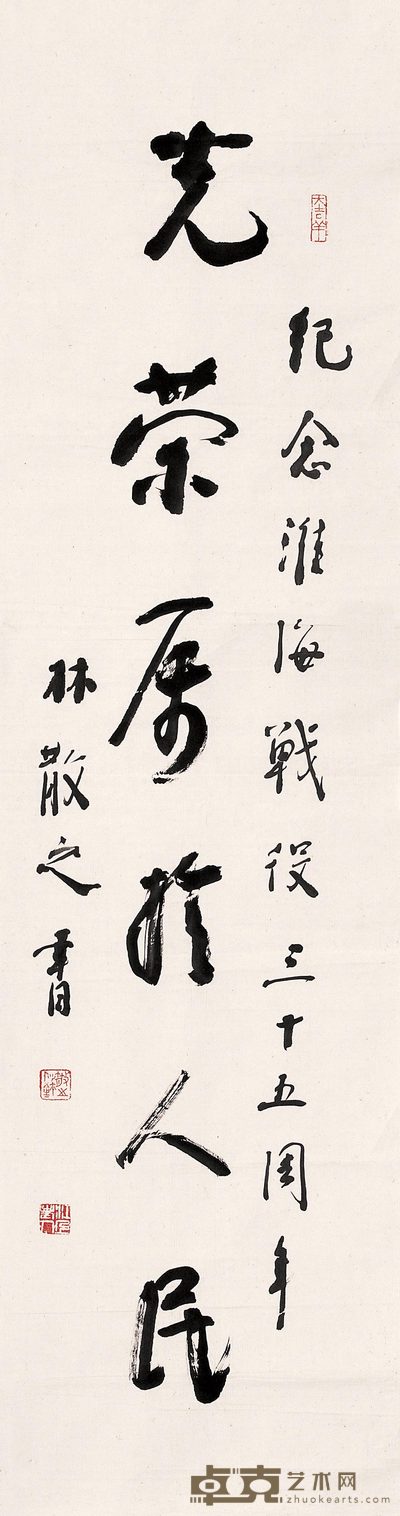 纪念淮海战役三十五周年
光荣属于人民
林散之書
卓克艺术网
zhuokearts.com